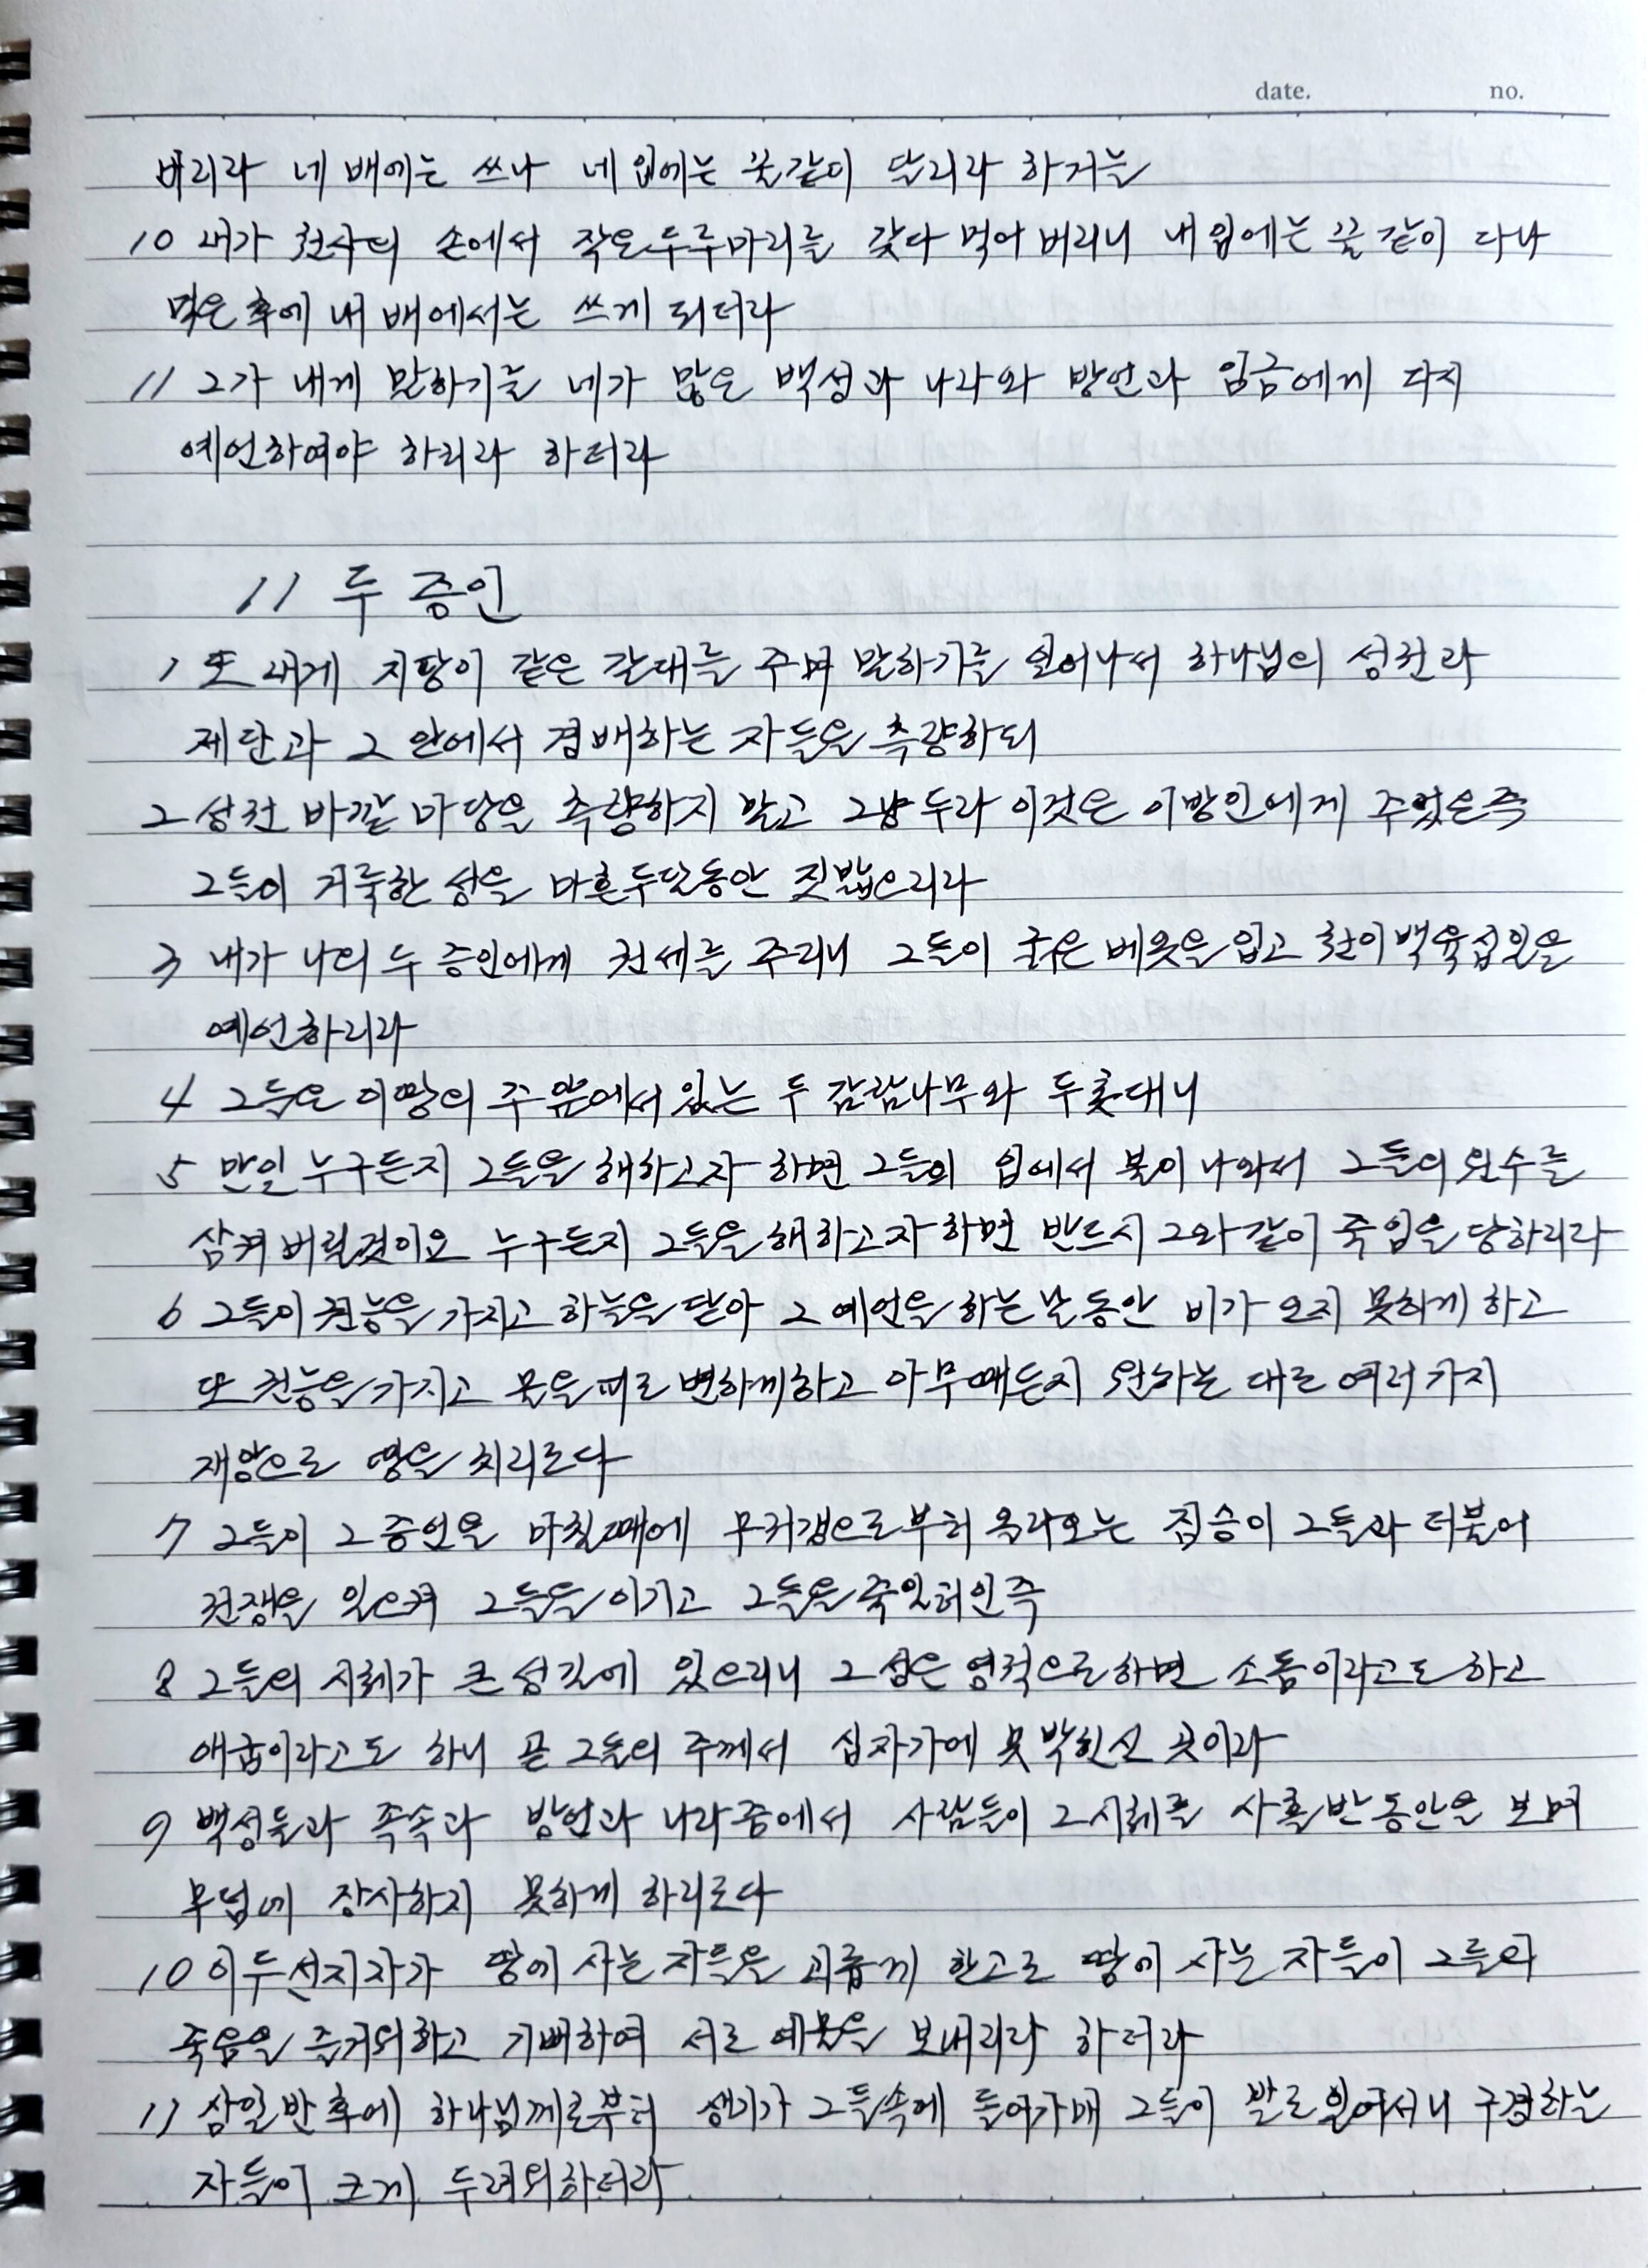 date. no.
버리라 네 배에는 쓰나 네 입에는 꿀같이 달리라 하거늘
10 내가 천사의 손에서 작은 두루마리를 갖다 먹어 버리니 내 입에는 꿀 같이 다나
먹은 후에 내 배에서는 쓰게 되더라
11 그가 내게 말하기를 네가 많은 백성과 나라와 방언과 임금에게 다시
예언하여야 하리라 하더라
11 두 증인
1 또 내게 지팡이 같은 갈대를 주며 말하기를 일어나서 하나님의 성전과
제단과 그 안에서 경배하는 자들을 측량하되
2 성전 바깥 마당은 측량하지 말고 그냥 두라 이것은 이방인에게 주었은즉
그들이 거룩한 성을 마흔두달동안 짓밟으리라
3 내가 나의 두 증인에게 권세를 주리니 그들이 굵은 베옷을 입고 천이백육십일을
예언하리라
4 그들은 이 땅의 주 앞에 서 있는 두 감람나무와 두 촛대니
5 만일 누구든지 그들을 해하고자 하면 그들의 입에서 불이 나와서 그들의 원수를
삼켜 버릴것이요 누구든지 그들을 해하고자 하면 반드시 그와 같이 죽임을 당하리라
6 그들이 권능을 가지고 하늘을 닫아 그 예언을 하는 날 동안 비가 오지 못하게 하고
또 권능을 가지고 물을 피로 변하게하고 아무때든지 원하는 대로 여러 가지
재앙으로 땅을 치리로다
7 그들이 그 증언을 마칠때에 무저갱으로부터 올라오는 짐승이 그들과 더불어
전쟁을 일으켜 그들을 이기고 그들을 죽일터인즉
8 그들의 시체가 큰 성 길에 있으리니 그 성은 영적으로하면 소돔이라고도 하고
애굽이라고도 하니 곧 그들의 주께서 십자가에 못 박히신 곳이라
9 백성들과 족속과 방언과 나라 중에서 사람들이 그 시체를 사흘 반 동안을 보며
무덤에 장사하지 못하게 하리로다
10 이 두 선지자가 땅에 사는 자들을 괴롭게 한고로 땅에 사는 자들이 그들의
죽음을 즐거워하고 기뻐하여 서로 예물을 보내리라 하더라
11 삼일 반 후에 하나님께로부터 생기가 그들속에 들어가매 그들이 발로 일어서니 구경하는
자들이 크게 두려워하더라